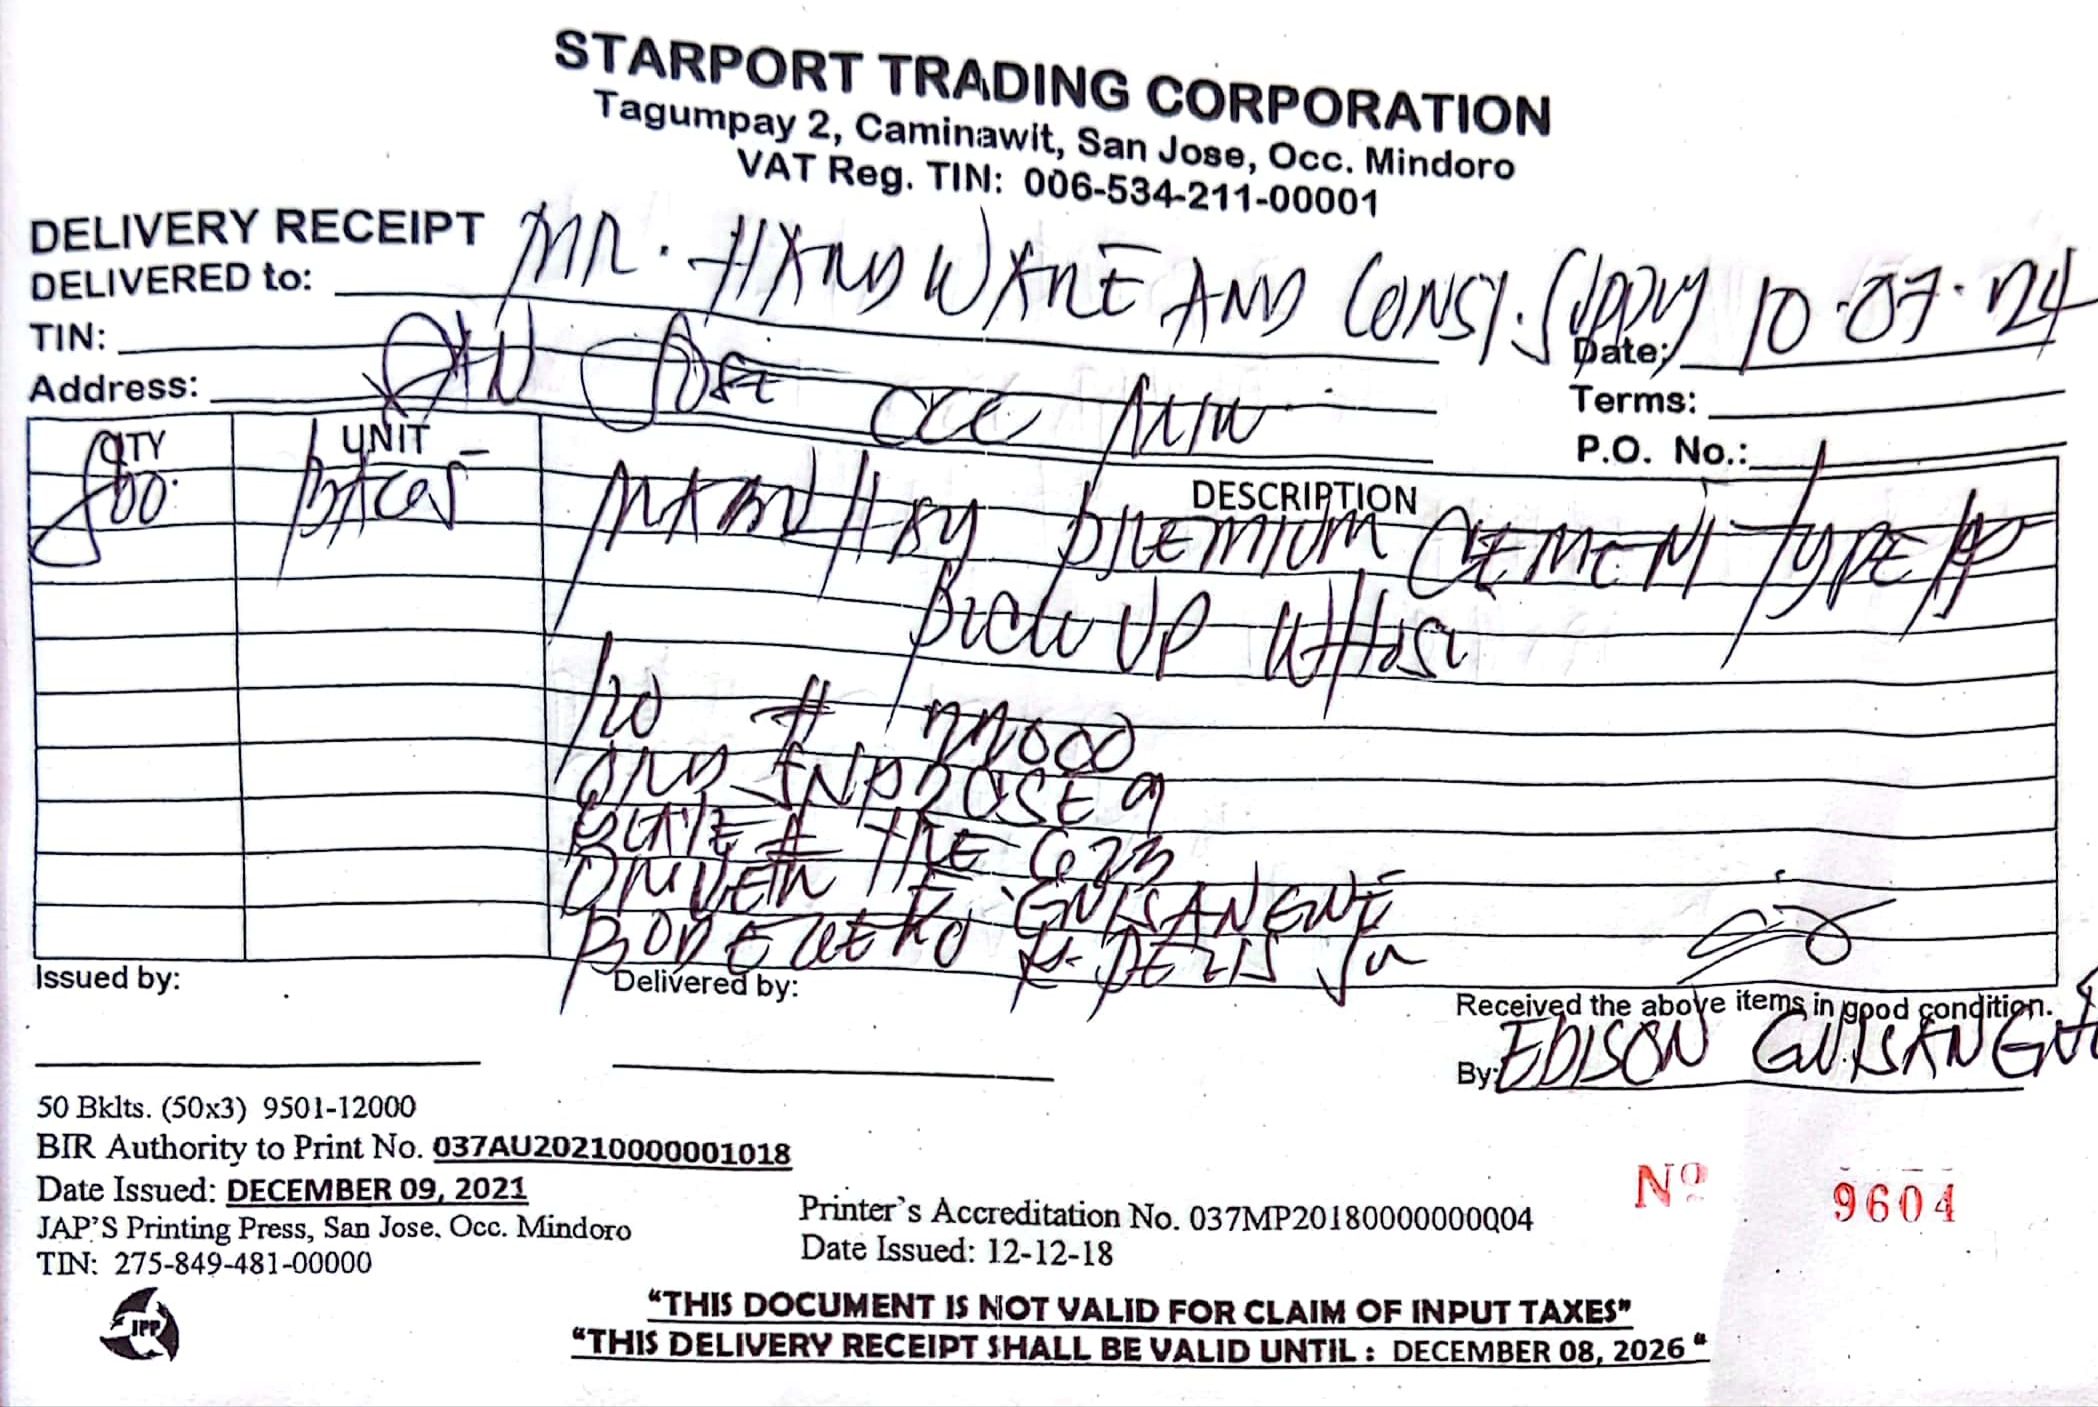 STARPORT TRADING CORPORATION
Tagumpay 2, Caminawit, San Jose, Occ. Mindoro
VAT Reg. TIN: 006-534-211-00001
DELIVERY RECEIPT
DELIVERED to: MR. HARDWARE AND CONST. SUPPLY
Date: 10-07-24
TIN:
Address: SAN JOSE OCC MIN
Terms:
P.O. No.:
QTY UNIT DESCRIPTION
800 BAGS PREMIUM CEMENT TYPE 1P
PICK UP WHSE
#
PLATE #
DRIVER E. GUISANGUE
JR
Issued by:
Delivered by:
Received the above items in good condition.
By: EDISON GUISANGUE
50 Bklts. (50x3) 9501-12000
BIR Authority to Print No. 037AU20210000001018
Date Issued: DECEMBER 09, 2021
JAP'S Printing Press, San Jose, Occ. Mindoro
TIN: 275-849-481-00000
Printer's Accreditation No. 037MP20180000000004
Date Issued: 12-12-18
Nº 9604
JPP
"THIS DOCUMENT IS NOT VALID FOR CLAIM OF INPUT TAXES"
"THIS DELIVERY RECEIPT SHALL BE VALID UNTIL : DECEMBER 08, 2026 "